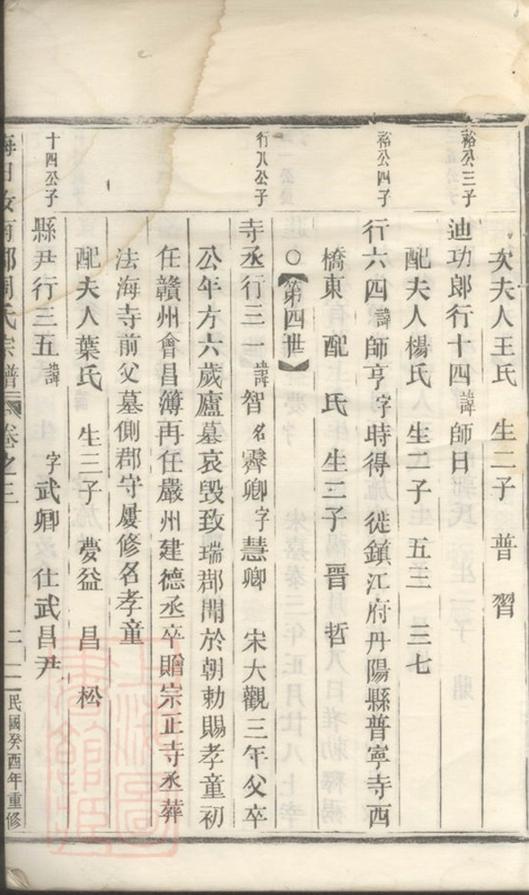 次夫人王氏 生二子 普 習
裕公三子
迪功郎行十四諱師日
配夫人楊氏 生二子 五三 三七
裕公四子
行六四諱師亨字時得 徙鎮江府丹陽縣普寧寺西
橋東 配 氏 生二子 晋 哲
○【第四世】
行八公子
寺丞行三一諱智名霽卿字慧卿 宋大觀三年父卒
公年方六歲廬墓哀毀致瑞郡聞於朝勅賜孝童初
任贛州會昌簿再任嚴州建德丞卒贈宗正寺丞葬
法海寺前父墓側郡守屢修名孝童
配夫人葉氏 生三子 夢益 昌 松
十四公子
縣尹行三五諱 字武卿 仕武昌尹
周氏宗譜 卷之三 民國癸酉年重修